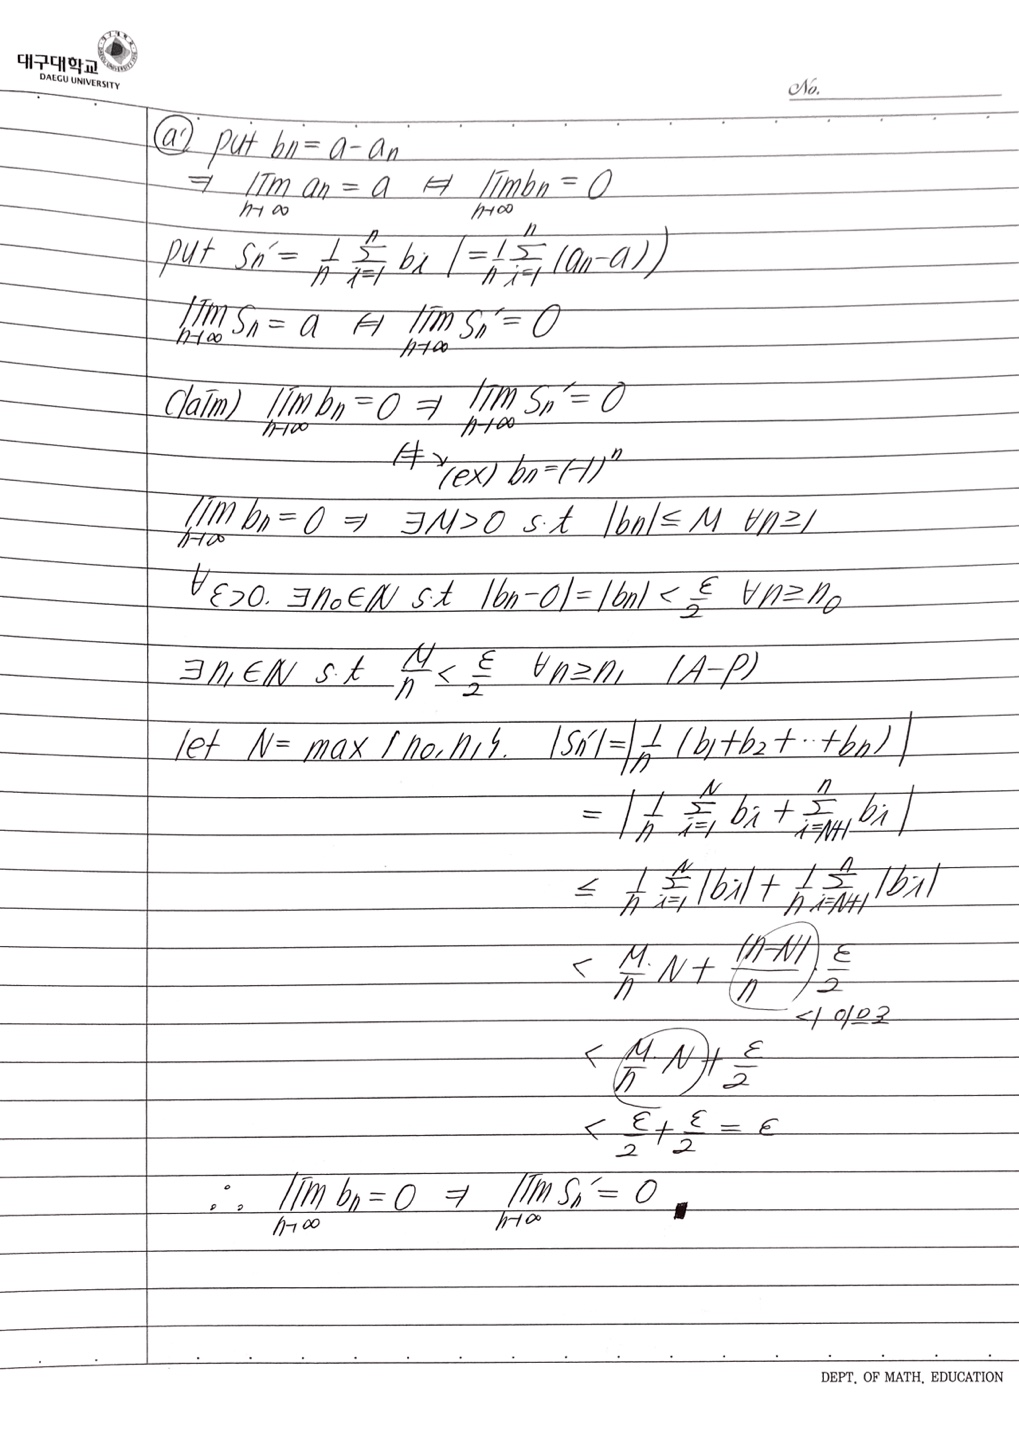 대구대학교
DAEGU UNIVERSITY
No.
ⓐ put bn = a - an
⇒ lim n→∞ an = a ⇔ lim n→∞ bn = 0
put Sn' = 1/n Σ i=1 n bi (= 1/n Σ i=1 n (an-a))
lim n→∞ Sn = a ⇔ lim n→∞ Sn' = 0
Claim) lim n→∞ bn = 0 ⇒ lim n→∞ Sn' = 0
⇍ (ex) bn = (-1)^n
lim n→∞ bn = 0 ⇒ ∃M>0 s.t |bn| ≤ M ∀n≥1
∀ε>0. ∃n0∈N s.t |bn-0| = |bn| < ε/2 ∀n≥n0
∃n1∈N s.t M/n < ε/2 ∀n≥n1 (A-P)
let N = max{n0, n1}. |Sn'| = |1/n (b1+b2+··+bn)|
= |1/n Σ i=1 N bi + Σ i=N+1 n bi|
≤ 1/n Σ i=1 N |bi| + 1/n Σ i=N+1 n |bi|
< M/n · N + (n-N)/n · ε/2
<1 이므로
< M/n · N + ε/2
< ε/2 + ε/2 = ε
∴ lim n→∞ bn = 0 ⇒ lim n→∞ Sn' = 0 ■
DEPT. OF MATH. EDUCATION